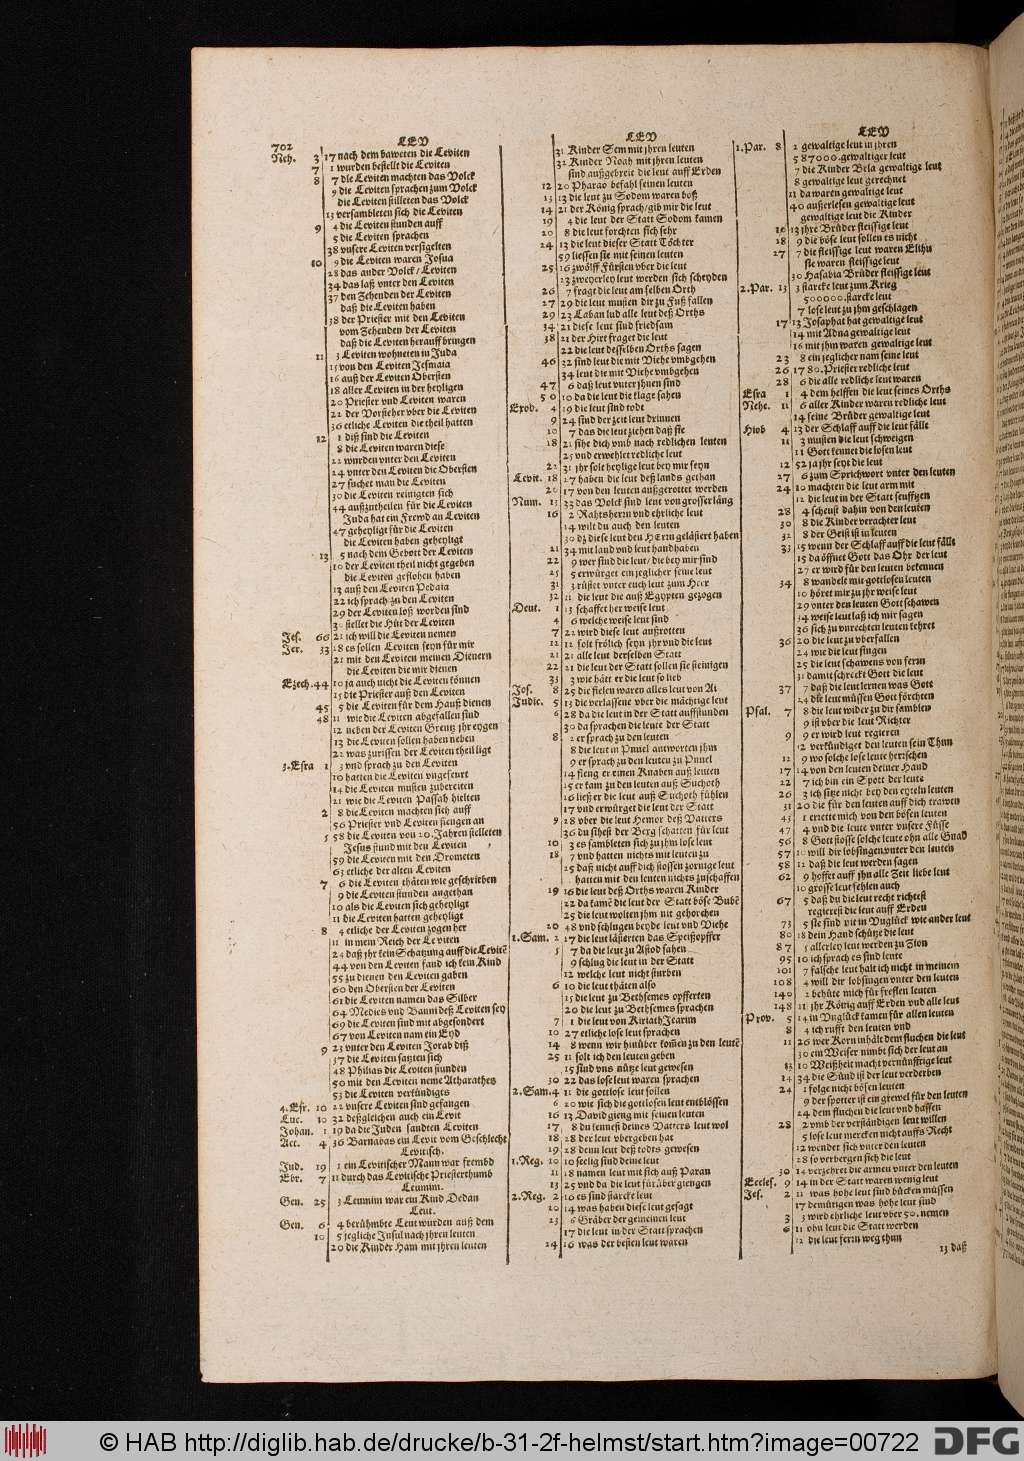 702
LEV
Neh. 3 17 nach dem baweten die Leviten
7 1 wurden bestellt die Leviten
8 7 die Leviten machten das Volck
9 die Leviten sprachen zum Volck
die Leviten stilleten das Volck
13 versambleten sich die Leviten
9 4 die Leviten stunden auff
5 die Leviten sprachen
38 unsere Leviten versigelten
10 9 die Leviten waren Josua
28 das ander Volck / Leviten
34 das laß unter den Leviten
37 den Zehenden der Leviten
daß die Leviten haben
38 der Priester mit den Leviten
vom Zehenden der Leviten
daß die Leviten herauff bringen
11 3 Leviten wohneten in Juda
15 von den Leviten Jesmaia
16 auß der Leviten Obersten
18 aller Leviten in der heyligen
20 Priester und Leviten waren
22 der Vorsteher uber die Leviten
36 etliche Leviten die theil hatten
12 1 diß sind die Leviten
8 die Leviten waren diese
22 wurden unter den Leviten
24 unter den Leviten die Obersten
27 suchet man die Leviten
30 die Leviten reinigten sich
44 außzutheilen für die Leviten
Juda hat ein Frewd an Leviten
47 geheyligt für die Leviten
die Leviten haben geheyligt
13 5 nach dem Gebott der Leviten
10 der Leviten theil nicht gegeben
die Leviten geflohen haben
13 auß den Leviten Pedaia
22 ich sprach zu den Leviten
29 der Leviten loß worden sind
30 stellet die Hüt der Leviten
Jes. 66 21 ich will die Leviten nemen
Jer. 33 18 es sollen Leviten seyn für mir
21 mit den Leviten meinen Dienern
die Leviten die mir dienen
Ezech. 44 10 ja auch nicht die Leviten können
15 die Priester auß den Leviten
45 5 die Leviten für dem Hauß dienen
48 11 wie die Leviten abgefallen sind
12 neben der Leviten Grentz jhr eygen
13 die Leviten sollen haben neben
22 was zurissen der Leviten theil ligt
3. Esra 1 3 und sprach zu den Leviten
10 hatten die Leviten ungeseurt
14 die Leviten musten zubereiten
21 wie die Leviten Passah hielten
2 8 die Leviten machten sich auff
56 Priester und Leviten siengen an
5 58 die Leviten von 20. Jahren stelleten
Jesus stund mit den Leviten
59 die Leviten mit den Drometen
63 etliche der alten Leviten
7 6 die Leviten thäten wie geschrieben
9 die Leviten stunden angethan
10 als die Leviten sich geheyligt
11 die Leviten hatten geheyligt
8 4 etliche der Leviten zogen her
11 in mein Reich der Leviten
24 daß jhr kein Schatzung auff die Levitē
44 von den Leviten fand ich kein Kind
55 zu dienen den Leviten gaben
60 den Obersten der Leviten
61 die Leviten namen das Silber
64 Medies und Banni deß Leviten sey
69 die Leviten sind nit abgesondert
67 von Leviten nam ein Eyd
9 23 unter den Leviten Jorab diß
37 die Leviten satzten sich
48 Philias die Leviten stunden
50 mit den Leviten neme Atharathes
53 die Leviten verkündigts
4. Esr. 10 22 unsere Leviten sind gefangen
Luc. 10 32 deßgleichen auch ein Levit
Johan. 1 19 da die Juden sandten Leviten
Act. 4 36 Barnabas ein Levit vom Geschlecht
Levitisch.
Jud. 19 1 ein Levitischer Mann war frembd
Ebr. 7 11 durch das Levitische Priesterthumb
Leumim.
Gen. 25 3 Leumim war ein Kind Dedan
Leut.
Gen. 6 4 berühmbte Leut wurden auß dem
10 5 jegliche Insul nach jhren leuten
20 die Kinder Ham mit jhren leuten
LEV
31 Kinder Sem mit jhren leuten
32 Kinder Noah mit jhren leuten
sind außgebreit die leut auff Erden
12 20 Pharao befahl seinen leuten
13 13 die leut zu Sodom waren böß
14 21 der König sprach / gib mir die leut
19 4 die leut der Statt Sodom kamen
20 8 die leut forchten sich sehr
24 13 die leut dieser Statt Töchter
59 liessen sie mit seinen leuten
25 16 zwölff Fürsten uber die leut
23 zweyerley leut werden sich scheyden
26 7 fragt die leut am selben Orth
27 29 die leut mußen dir zu Fuß fallen
29 23 Laban lud alle leut deß Orths
34 21 diese leut sind friedsam
38 21 der Hirt fraget die leut
22 die leut desselben Orths sagen
46 32 sind leut die mit Viehe umbgehen
34 leut die mit Viehe umbgehen
47 6 daß leut unter jhnen sind
50 10 da die leut die klage sahen
Exod. 4 19 die leut sind todt
9 24 sind der zeit leut drinnen
10 7 das die leut ziehen daß sie
18 21 sihe dich umb nach redlichen leuten
25 und erwehlet redliche leut
22 31 jhr solt heylige leut bey mir seyn
Levit. 18 27 haben die leut deß lands gethan
20 17 von den leuten außgerottet werden
Num. 13 33 das Volck sind leut von grosser läng
16 2 Rahtsherrn und ehrliche leut
14 wilt du auch den leuten
30 dz diese leut den Herrn gelästert haben
21 34 mit land und leut handhaben
22 9 wer sind die leut / die bey mir sind
25 5 erwürget ein jeglicher seine leut
31 3 rüstet unter euch leut zum Heer
32 11 die leut die auß Egypten gezogen
Deut. 1 13 schaffet her weise leut
4 6 welche weise leut sind
7 21 wird diese leut außrotten
12 12 solt frölich seyn jhr und die leut
21 21 alle leut derselben Statt
22 21 die leut der Statt sollen sie steinigen
33 3 wie hätt er die leut so lieb
Jos. 8 25 die fielen waren alles leut von Ai
Judic. 5 13 die verlassene uber die mächtige leut
6 28 da die leut in der Statt auffstunden
30 da sprachen die leute der Statt
8 2 er sprach zu den leuten
8 die leut in Pnuel antworten jhm
9 er sprach zu den leuten zu Pnuel
14 fieng er einen Knaben auß leuten
15 er kam zu den leuten auß Suchoth
16 ließ er die leut auß Suchoth fühlen
17 und erwürget die leut der Statt
9 28 uber die leut Hemor deß Vatters
36 du sihest der Berg schatten für leut
10 3 es sambleten sich zu jhm lose leut
18 7 und hatten nichts mit leuten zu
25 daß nicht auff dich stossen zornige leut
hatten mit den leuten nichts zuschaffen
19 16 die leut deß Orths waren Kinder
22 da kamē die leut der Statt böse Bubē
25 die leut wolten jhm nit gehorchen
20 48 und schlugen beyde leut und Viehe
1. Sam. 2 17 die leut lästerten das Speißopffer
5 7 da die leut zu Asdod sahen
9 schlug die leut in der Statt
12 welche leut nicht sturben
6 10 die leut thäten also
15 die leut zu Bethsemes opfferten
20 die leut zu Bethsemes sprachen
7 1 die leut von Kiriath Jearim
10 27 etliche lose leut sprachen
14 8 wenn wir hinüber kom̄en zu den leutē
25 11 solt ich den leuten geben
15 sind uns nütze leut gewesen
30 22 das lose leut waren sprachen
2. Sam. 4 11 die gottlose leut sollen
6 20 wie sich die gottlosen leut entblössen
16 13 David gieng mit seinen leuten
17 8 du kennest deines Vatters leut wol
18 28 der leut ubergeben hat
19 28 denn leut deß todts gewesen
1. Reg. 10 10 seelig sind deine leut
11 18 namen leut mit sich auß Paran
13 25 und da die leut fürüber giengen
2. Reg. 2 16 es sind starcke leut
10 14 was haben diese leut gesagt
23 6 Gräber der gemeinen leut
17 die leut in der Statt sprachen
24 16 was der besten leut waren
LEV
1. Par. 8 2 gewaltige leut in jhren
5 87000. gewaltiger leut
7 die Kinder Bela gewaltige leut
8 gewaltige leut gerechnet
11 da waren gewaltige leut
40 außerlesen gewaltige leut
gewaltige leut die Kinder
16 13 jhre Brüder fleissige leut
18 9 die böse leut sollen es nicht
27 7 die fleissige leut waren Elihu
sie waren fleissige leut
30 Hasabia Brüder fleissige leut
2. Par. 13 3 starcke leut zum Krieg
500000. starcke leut
7 lose leut zu jhm geschlagen
17 13 Josaphat hat gewaltige leut
14 mit Adna gewaltige leut
16 mit jhm waren gewaltige leut
23 8 ein jeglicher nam seine leut
26 17 80. Priester redliche leut
28 6 die alle redliche leut waren
Esra 1 4 dem helffen die leut seines Orths
Nehe. 11 6 aller Kinder waren redliche leut
14 seine Brüder gewaltige leut
Hiob 4 13 der Schlaff auff die leut fällt
11 3 mußten die leut schweigen
11 Gott kennet die losen leut
12 52 ja jhr seyt die leut
27 6 zum Sprichwort unter den leuten
24 10 machten die leut arm mit
12 die leut in der Statt seufftzen
28 4 scheust dahin von den leuten
30 8 die Kinder verachter leut
32 8 der Geist ist in leuten
33 15 wenn der Schlaff auff die leut fällt
15 da öffnet Gott das Ohr der leut
27 er wird für den leuten bekennen
34 8 wandelt mit gottlosen leuten
10 höret mir zu jhr weise leut
29 unter den leuten Gott schawen
34 weise leut laß ich mir sagen
36 sich zu unrechten leuten kehret
36 20 die leut zu uberfallen
24 wie die leut singen
25 die leut schawens von ferrn
31 damit schreckt Gott die leut
37 7 daß die leut lernen was Gott
24 die leut müssen Gott förchten
Psal. 7 8 die leut wider zu dir samblen
9 ist uber die leut Richter
9 9 er wird leut regieren
12 verkündiget den leuten sein Thun
12 9 wo solche lose leute herrschen
17 14 von den leuten deiner Hand
22 7 ich bin ein Spott der leute
26 3 ich sitze nicht bey den eyteln leuten
31 20 die für den leuten auff dich trawen
43 1 errette mich von den bösen leuten
47 4 und die leute unter unsere Füsse
56 8 Gott stosse solche leute ohn alle Gnad
57 10 will dir lobsingen unter den leuten
58 12 daß die leut werden sagen
62 9 hoffet auff jhn alle Zeit liebe leut
10 grosse leut fehlen auch
67 5 daß du die leut recht richtest
regierest die leut auff Erden
73 5 sie sind nit in Unglück wie ander leut
80 18 dein Hand schütze die leut
87 5 allerley leut werden zu Zion
95 10 ich sprach es sind leute
101 7 falsche leut halt ich nicht in meinem
108 4 will dir lobsingen unter den leuten
140 2 behüte mich für freflen leuten
148 11 jhr König auff Erden und alle leut
Prov. 5 14 in Unglück kamen für allen leuten
8 4 ich ruffe den leuten und
11 26 wer Korn inhält dem fluchen die leut
30 ein Weiser nimbt sich der leut an
13 10 Weißheit macht vernünfftige leut
14 34 die Sünd ist der leut verderben
24 1 folge nicht bösen leuten
9 der spotter ist ein grewel für den leuten
24 dem fluchen die leut und hassen
28 2 umb der verständigen leut willen
5 lose leut mercken nicht auffs Recht
12 wender sich unter den leuten
28 so verbergen sich die leut
30 14 verzehret die armen unter den leuten
Eccles. 9 14 in der Statt waren wenig leut
Jes. 2 11 was hohe leut sind bücken müssen
17 demütigen was hohe leut sind
3 3 wird ehrliche leut uber 50. nemen
6 11 ohn leut die Statt werden
12 die leut ferrn weg thun
13 daß
© HAB http://diglib.hab.de/drucke/b-31-2f-helmst/start.htm?image=00722
DFG